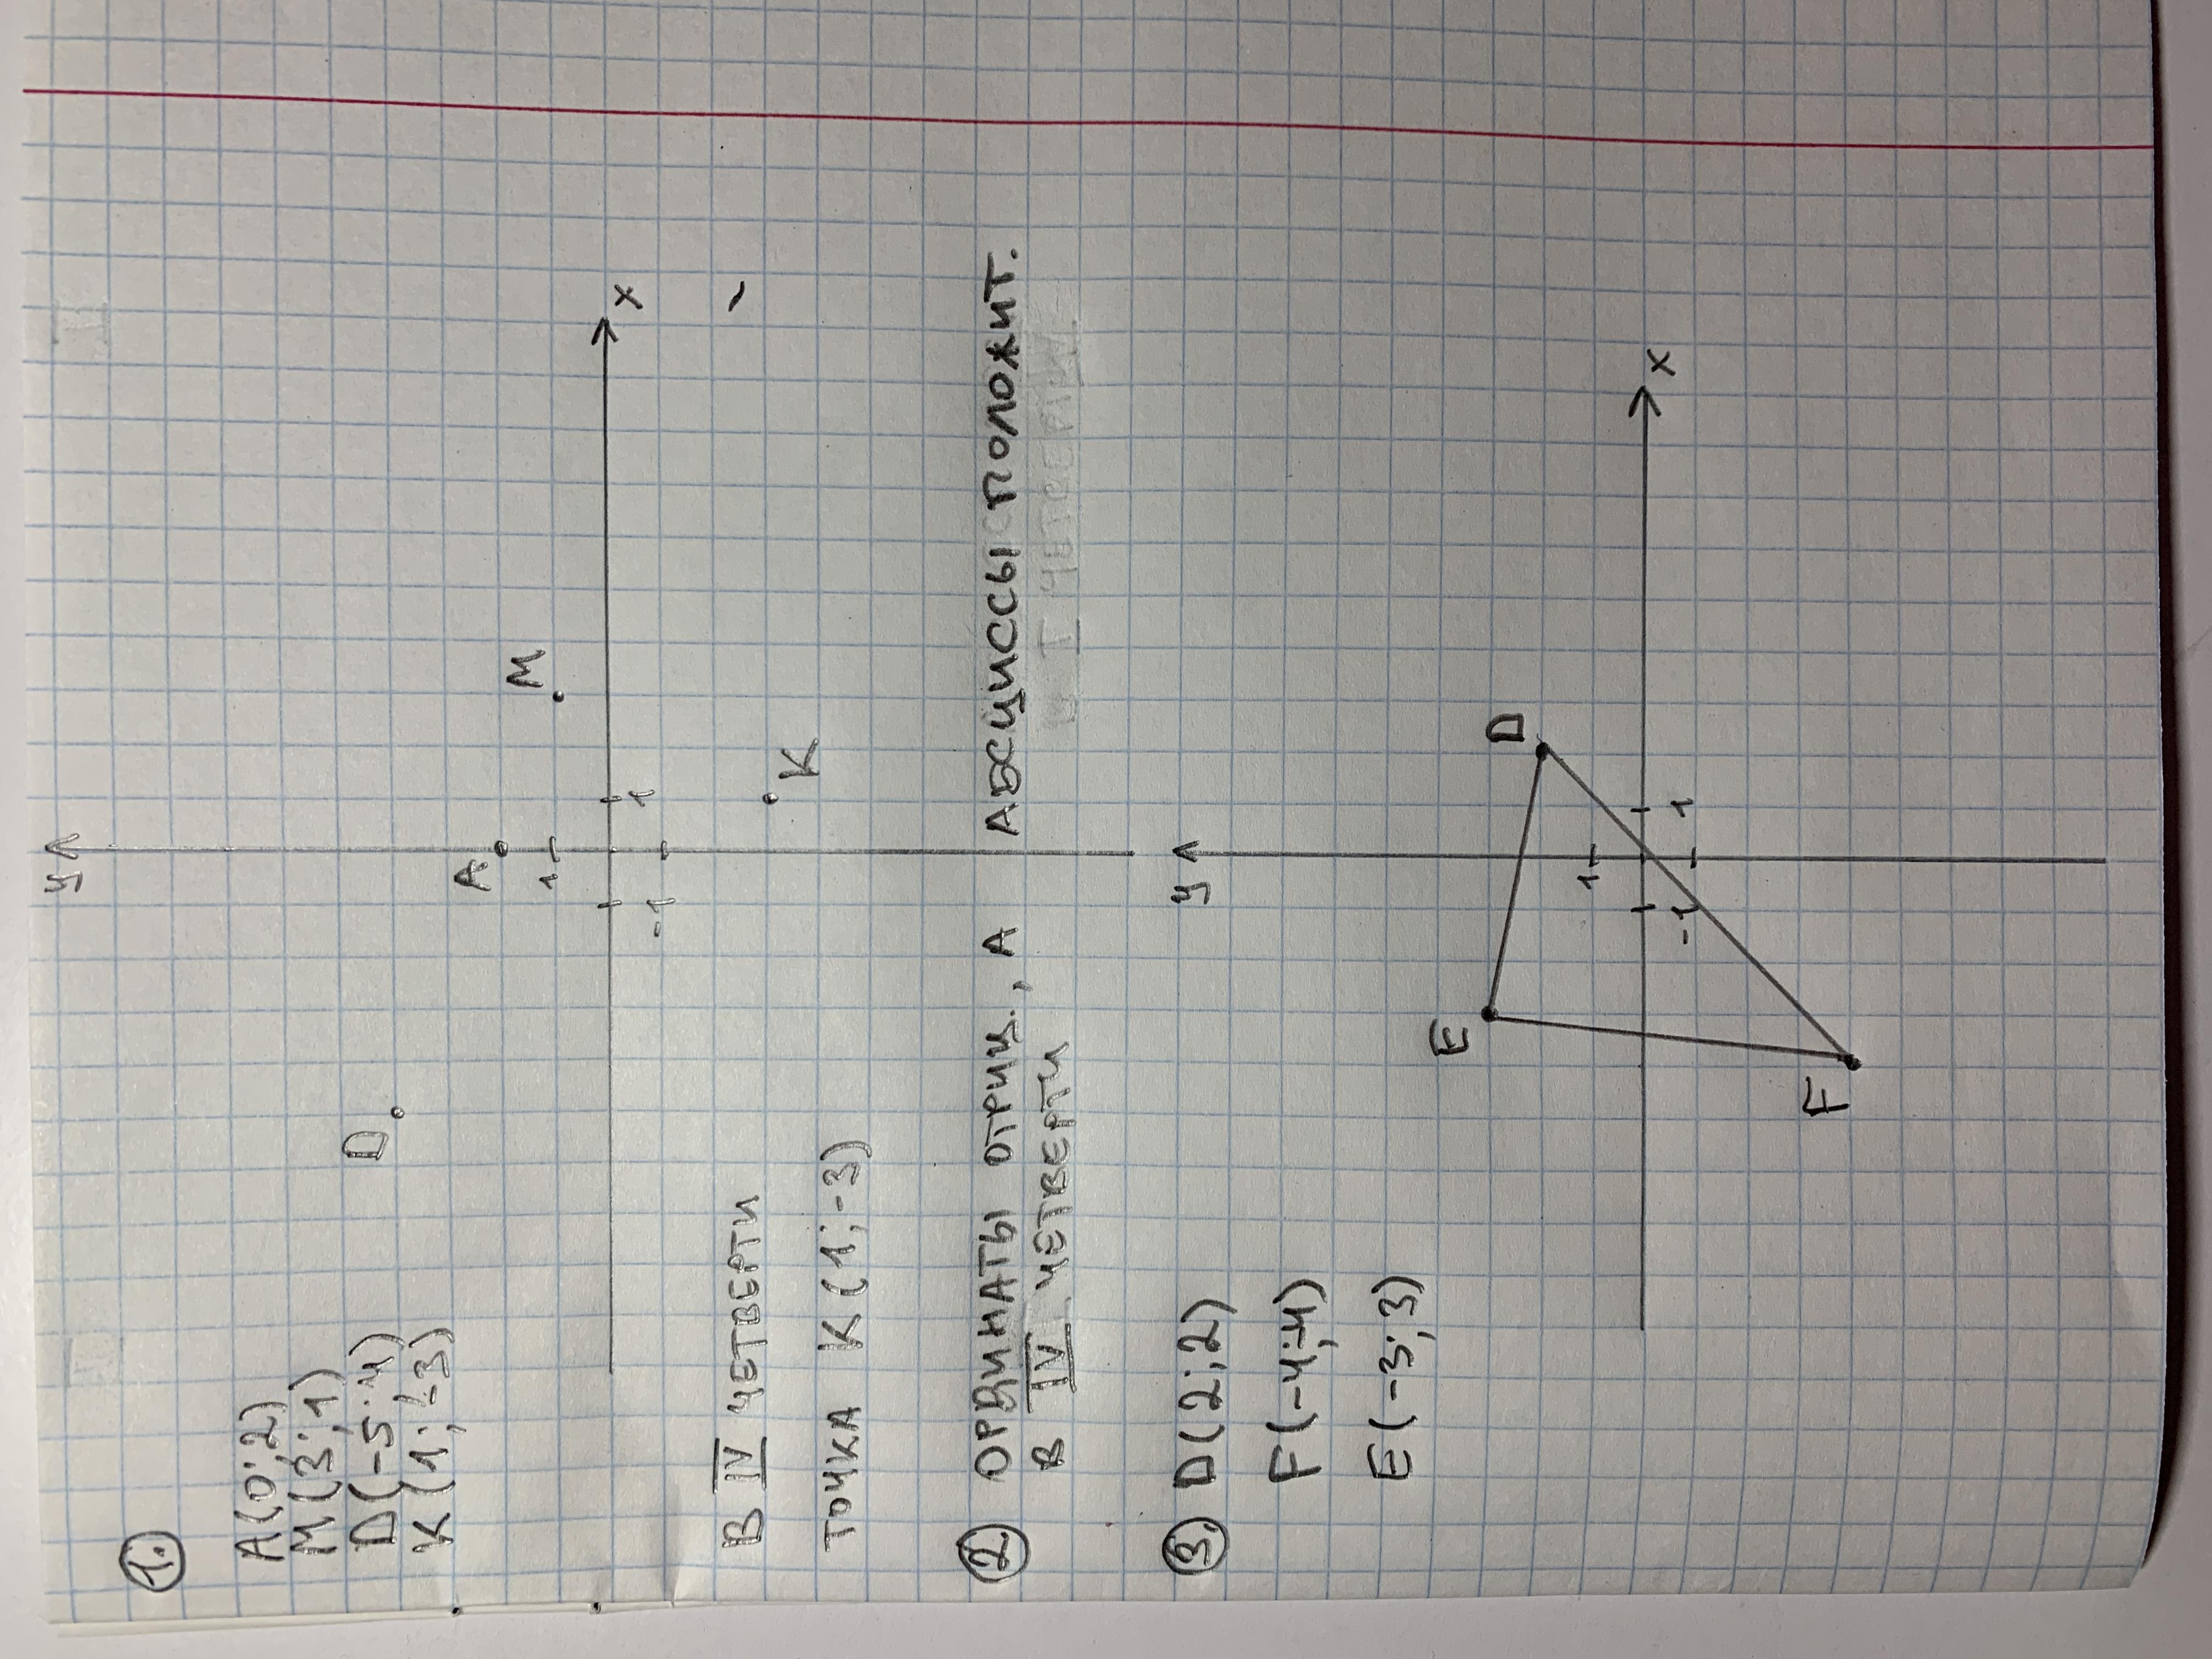 1.
A(0;2)
M(3;1)
D(-5;4)
K(1;-3)
y
x
A
M
D
K
1
1
-1
В IV четверти
точка K(1;-3)
2. ординаты отриц., а абсциссы положит.
в IV четверти
3. D(2;2)
F(-4;-4)
E(-3;3)
y
x
E
D
F
1
1
-1